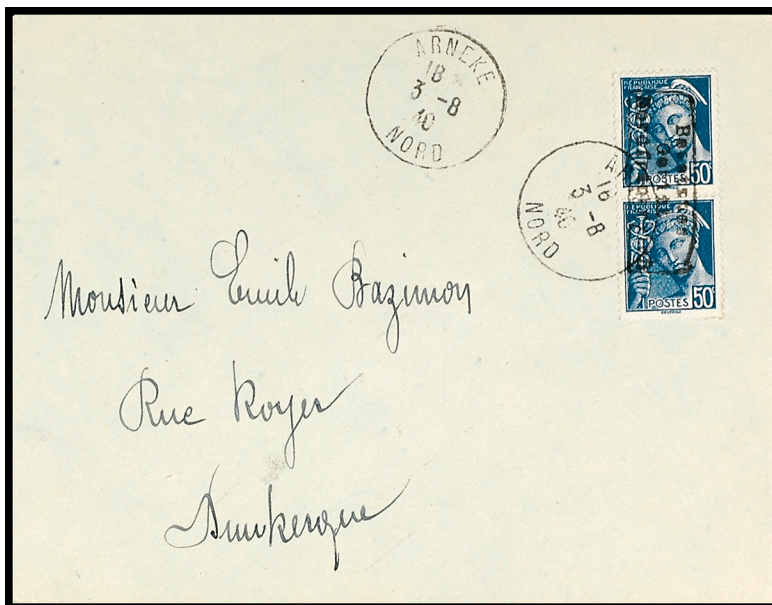 ARNEKE
18
3 -8
40
NORD
RÉPUBLIQUE
FRANÇAISE
POSTES 50
18
3 -8
40
NORD
RÉPUBLIQUE
FRANÇAISE
POSTES 50
Monsieur Emile Bazimon
Rue Royer
Dunkerque